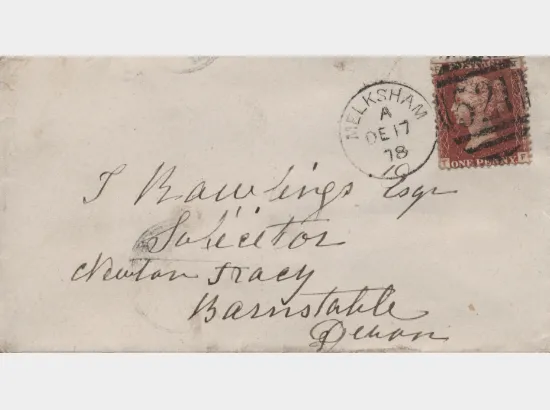 MELKSHAM
A
DE 17
78
ONE PENNY
J Rawlings Esqr
Solicitor
Newton Tracy
Barnstable
Devon